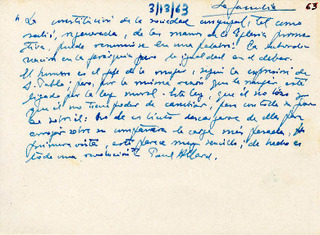 3/3/63 La familia 63
"La constitución de la sociedad conyugal, tal como
salió, regenerada, de las manos de la Iglesia
tiva, puede resumirse en una palabra: la subordi-
nación en la jerarquía pero la igualdad en el deber.
El hombre es el jefe de la mujer, según la expresión de
S. Pablo; pero, por lo mismo que la mujer, está
ligado por la ley moral. Esta ley, que él no hizo y
que él no tiene poder de cambiar, pesa con todo su
sobre él: No le es lícito descargarse de ella para
arrojar sobre su compañera la carga más pesada. A
primera vista, esto parece muy sencillo; de hecho es
toda una revolución" Paul Allard.